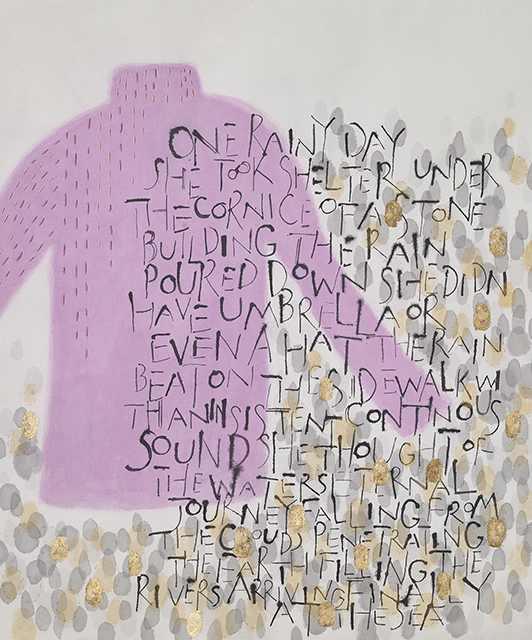 ONE RAINY DAY
SHE TOOK SHELTER UNDER
THE CORNICE OF A STONE
BUILDING THE RAIN
POURED DOWN SHE DIDN
HAVE UMBRELLA OR
EVEN A HAT THE RAIN
BEAT ON THE SIDEWALK WI
TH AN INSISTENT CONTINOUS
SOUND SHE THOUGHT OF
THE WATERS ETERNAL
JOURNEY FALLING FROM
THE CLOUDS PENETRATING
THE EARTH FILLING THE
RIVERS ARRIVING FINALLY
AT THE SEA